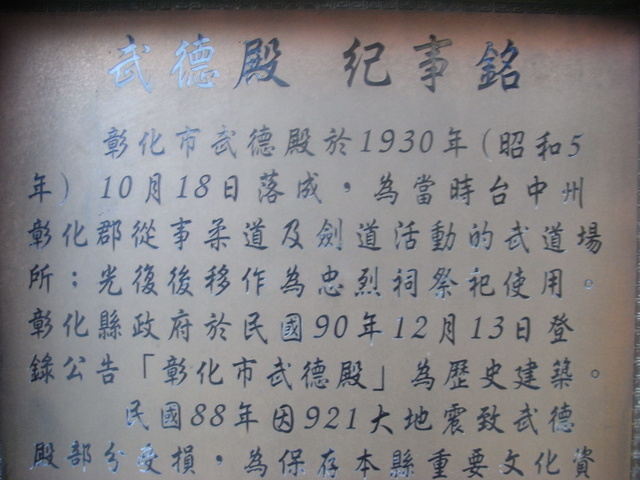 武德殿 紀事銘
彰化市武德殿於1930年(昭和5
年) 10月18日落成，為當時台中州
彰化郡從事柔道及劍道活動的武道場
所：光復後移作為忠烈祠祭祀使用。
彰化縣政府於民國90年12月13日登
錄公告「彰化市武德殿」為歷史建築。
民國88年因921大地震致武德
殿部分受損，為保存本縣重要文化資